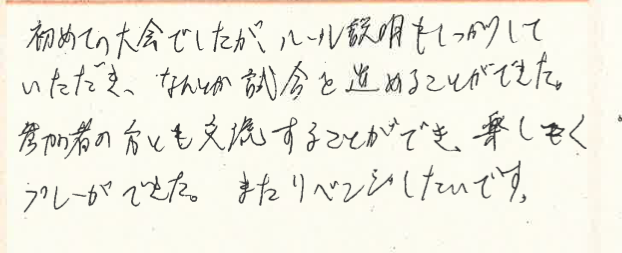 初めての大会でしたが、ルール説明もしっかりして
いただき、なんとか試合を進めることができた。
参加者の方とも交流することができ、楽しく
プレーができた。またリベンジしたいです。